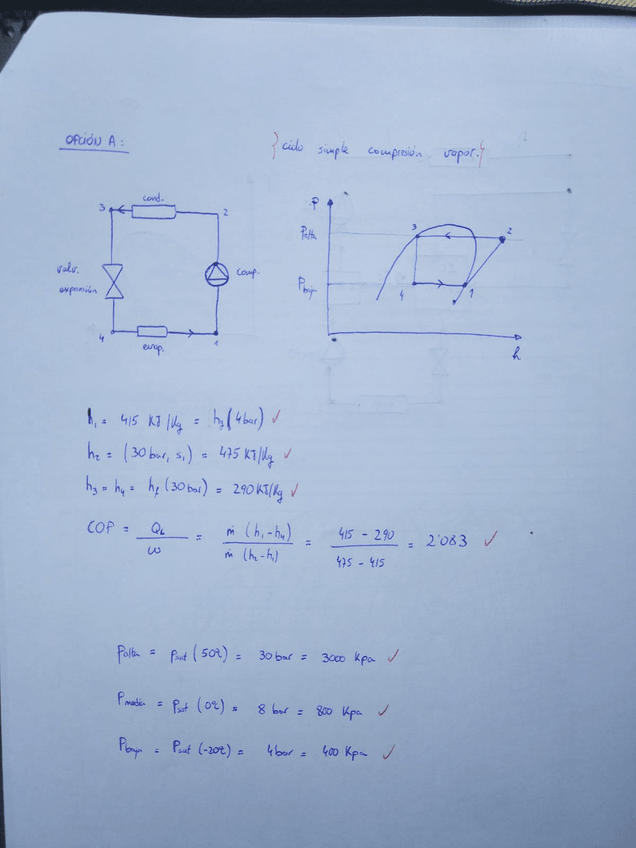 OPCIÓN A:
{ciclo simple compresión vapor.}
cond.
3
2
valv.
expansión
comp.
4
1
evap.
P
Palta
3
2
Pbaja
4
1
h
h₁ = 415 KJ/Kg = hg (4 bar) ✓
h₂ = (30 bar, s₁) = 475 KJ/Kg ✓
h₃ = h₄ = hf (30 bar) = 290 KJ/Kg ✓
COP = QL / ω = ṁ (h₁-h₄) / ṁ (h₂-h₁) = 415 - 290 / 475 - 415 = 2'083 ✓
Palta = Psat (50ºC) = 30 bar = 3000 Kpa ✓
Pmedia = Psat (0ºC) = 8 bar = 800 Kpa ✓
Pbaja = Psat (-20ºC) = 4 bar = 400 Kpa ✓